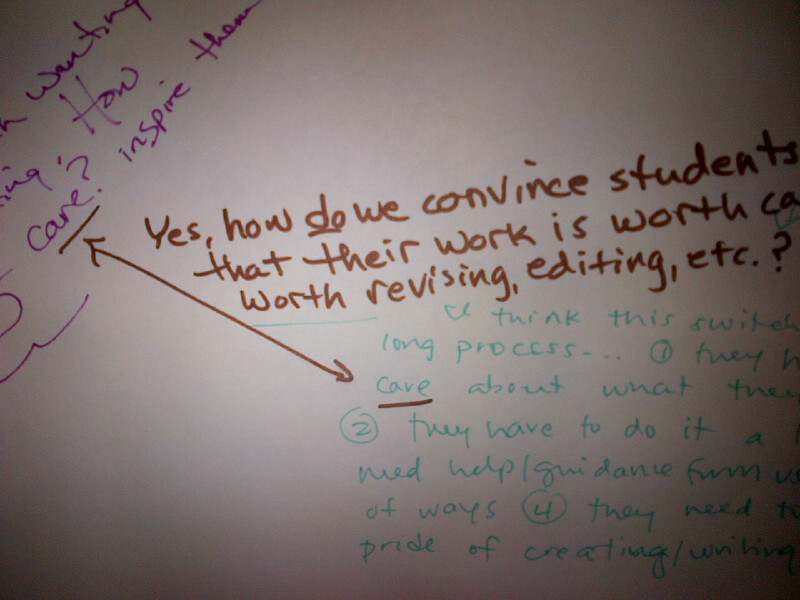 wanting
How
care? inspire them
Yes, how do we convince students
that their work is worth
worth revising, editing, etc.?
I think this switch
long process... ① they
care about what they
② they have to do it a
need help/guidance from us
of ways ④ they need to
pride of creating/writing